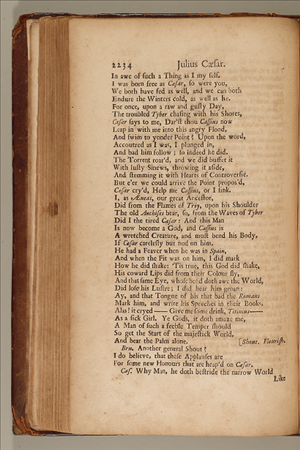 2234 Julius Cæsar.
In awe of such a Thing as I my self.
I was born free as Cæsar, so were you,
We both have fed as well, and we can both
Endure the Winters cold, as well as he.
For once, upon a raw and gusty Day,
The troubled Tyber chafing with his Shores,
Cæsar says to me, Dar'st thou Cassius now
Leap in with me into this angry Flood,
And swim to yonder Point? Upon the word,
Accoutred as I was, I plunged in,
And bad him follow; so indeed he did.
The Torrent roar'd, and we did buffet it
With lusty Sinews, throwing it aside,
And stemming it with Hearts of Controversie.
But e'er we could arrive the Point propos'd,
Cæsar cry'd, Help me Cassius, or I sink.
I, as Æneas, our great Ancestor,
Did from the Flames of Troy, upon his Shoulder
The old Anchises bear, so, from the Waves of Tyber
Did I the tired Cæsar: And this Man
Is now become a God, and Cassius is
A wretched Creature, and must bend his Body,
If Cæsar carelesly but nod on him.
He had a Feaver when he was in Spain,
And when the Fit was on him, I did mark
How he did shake: 'Tis true, this God did shake,
His coward Lips did from their Colour fly,
And that same Eye, whose bend doth awe the World,
Did lose his Lustre; I did hear him groan:
Ay, and that Tongue of his that bad the Romans
Mark him, and write his Speeches in their Books,
Alas! it cryed — Give me some drink, Titinius —
As a sick Girl. Ye Gods, it doth amaze me,
A Man of such a feeble Temper should
So get the Start of the majestick World,
And bear the Palm alone. [Shout. Flourish.
Bru. Another general Shout!
I do believe, that these Applauses are
For some new Honours that are heap'd on Cæsar.
Cas. Why Man, he doth bestride the narrow World
Like